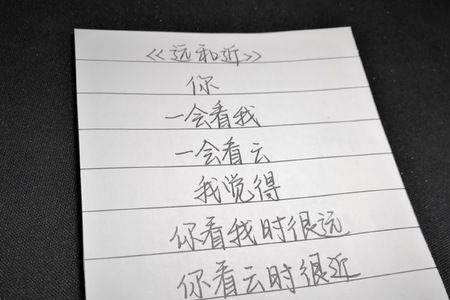 《远和近》
你
一会看我
一会看云
我觉得
你看我时很远
你看云时很近